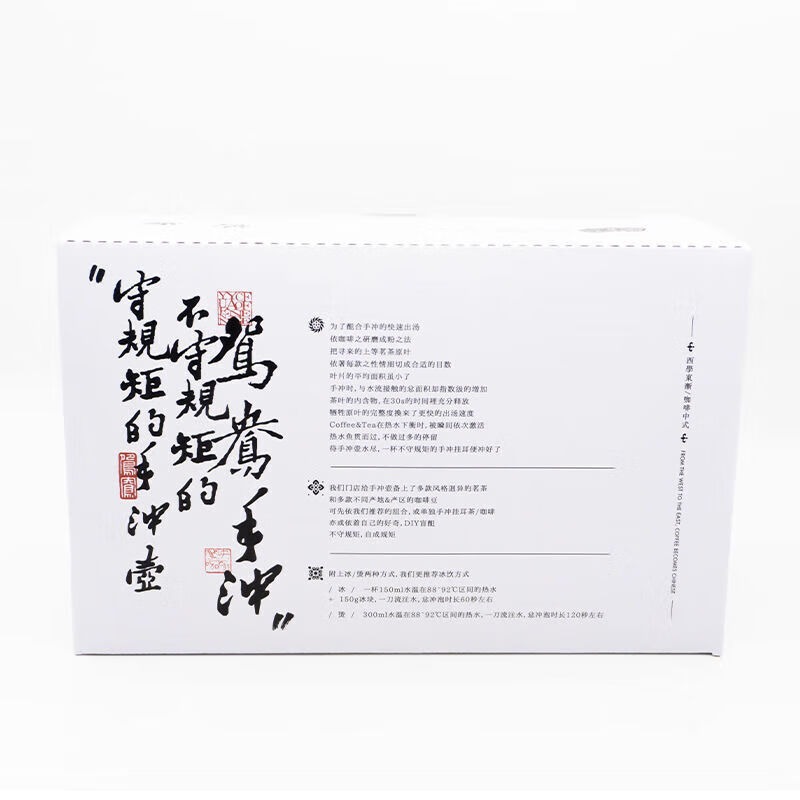 "守規矩的手沖壺
不守規矩的
鴛鴦手沖"
鴛鴦
为了配合手冲的快速出汤
依咖啡之研磨成粉之法
把寻来的上等茗茶原叶
依著每款之性情细切成合适的目数
叶片的平均面积虽小了
手冲时,与水流接触的总面积却指数级的增加
茶叶的内含物,在30s的时间裡充分释放
牺牲原叶的完整度换来了更快的出汤速度
Coffee&Tea在热水下衝时,被瞬间依次激活
热水鱼贯而过,不做过多的停留
待手冲壶水尽,一杯不守规矩的手冲挂耳便冲好了
我们门店给手冲壶备上了多款风格迥异的茗茶
和多款不同产地&产区的咖啡豆
可先依我们推荐的组合,或单独手冲挂耳茶/咖啡
亦或依着自己的好奇,DIY盲配
不守规矩,自成规矩
附上冰/烫两种方式,我们更推荐冰饮方式
/ 冰 / 一杯150ml水温在88~92℃区间的热水
+ 150g冰块,一刀流注水,总冲泡时长60秒左右
/ 烫 / 300ml水温在88~92℃区间的热水,一刀流注水,总冲泡时长120秒左右
西學東漸/咖啡中式
FROM THE WEST TO THE EAST, COFFEE BECOMES CHINESE